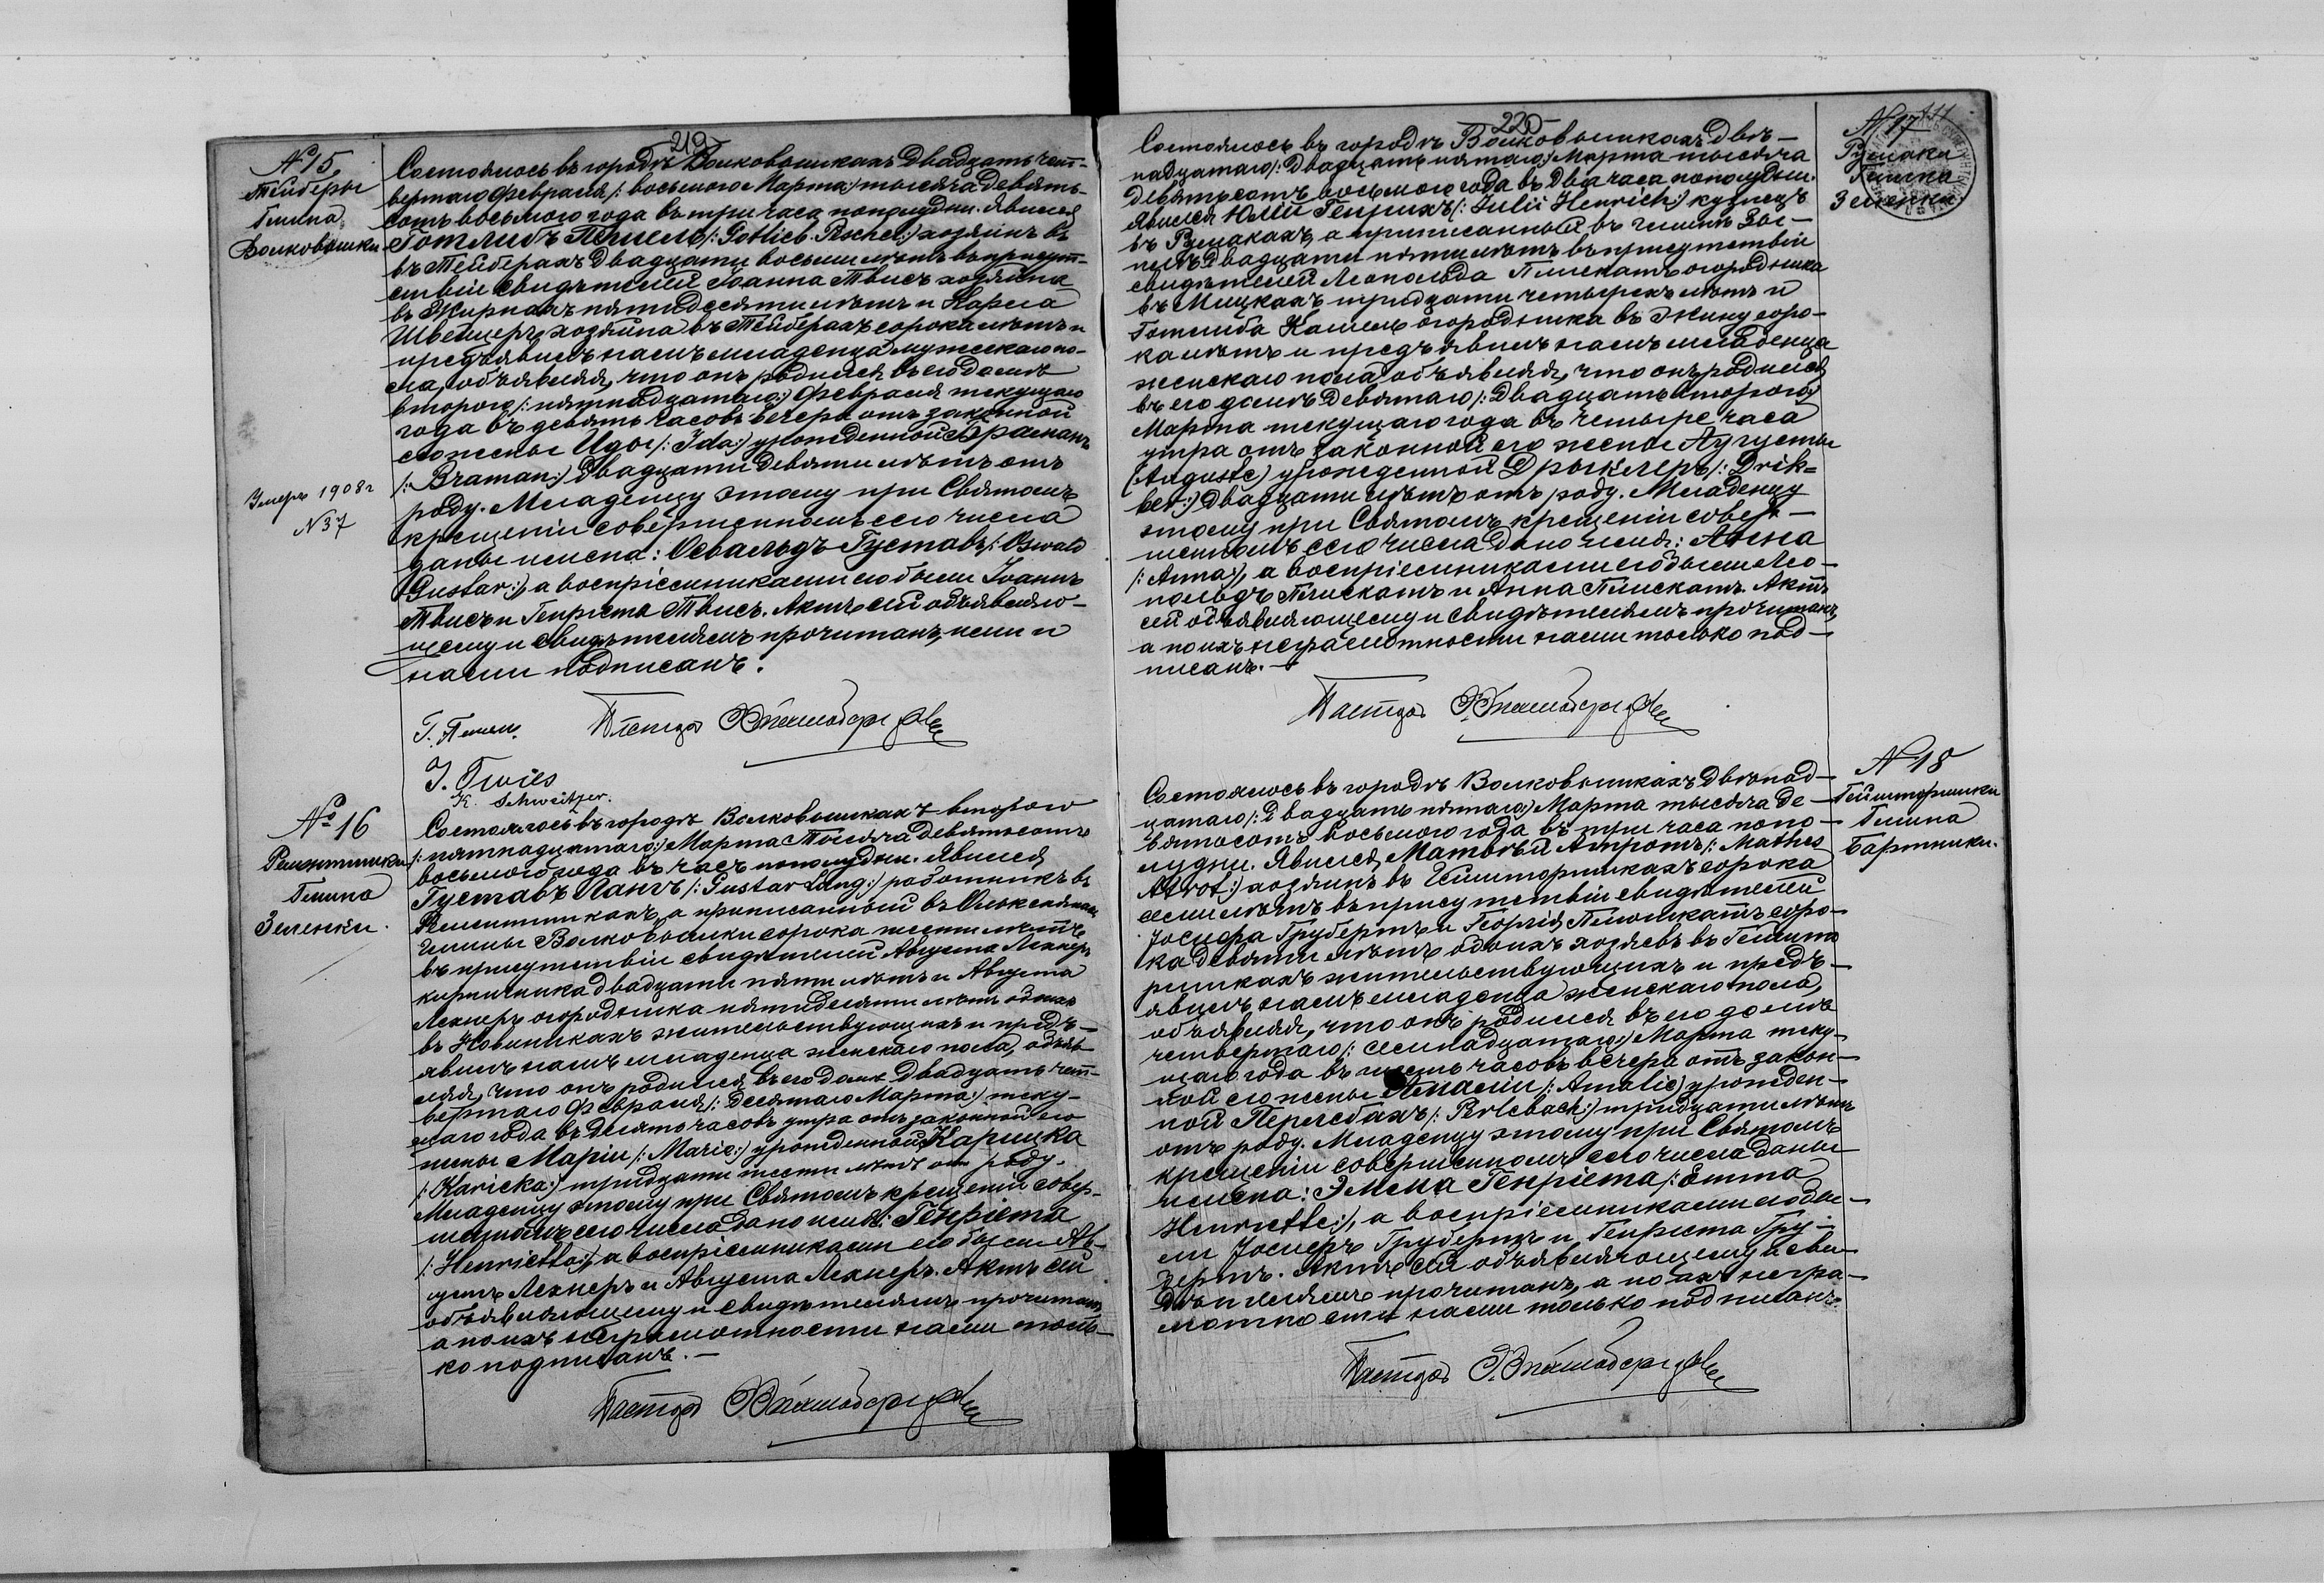 219
№ 15
Тейберы
Гмина
Волковышки
Состоялось въ городѣ Волковышкахъ двадцать чет-
вертаго Февраля /: восьмого Марта :/ тысяча девять-
сотъ восьмого года въ три часа пополудни. Явился
Готлибъ Пешель /: Gotlieb Peschel :/ хозяинъ въ
въ Тейберахъ двадцати восьми лѣтъ въ присут-
ствіи свидѣтелей Іоанна Твисъ хозяина
въ пятидесяти лѣтъ и Карла
Швейцеръ хозяина въ Тейберахъ сорока лѣтъ и
предъявилъ намъ младенца мужескаго по-
ла, объявляя, что онъ родился въ его домѣ
второго /: пятнадцатаго :/ Февраля текущаго
года въ девять часовъ вечера отъ законной
его жены Иды /: Ida :/ урожденной Браманъ
/: Braman :/ двадцати девяти лѣтъ отъ
роду. Младенцу этому при Святомъ
крещеніи совершенномъ сего числа
даны имена: Освальдъ Густавъ /: Oswald
Gustav :/, а воспріемниками его были Іоаннъ
Твисъ и Генріета Твисъ. Актъ сей объявляю-
щему и свидѣтелямъ прочитанъ, ими и
нами подписанъ.
Умеръ 1908 г
№ 37
Г. Пешель. Пасторъ
J. Twies
K. Schweitzer.
№ 16
Гмина
Зеленки.
Состоялось въ городѣ Волковышкахъ второго
/: пятнадцатаго :/ Марта тысяча девятьсотъ
восьмого года въ часъ пополудни. Явился
Густавъ Лангъ /: Gustav Lang :/ работникъ въ
а приписанный въ
Гмины Волковышки сорока шести лѣтъ
въ присутствіи свидѣтелей Августа Лехнеръ
кирпичника двадцати пяти лѣтъ и Августа
Лехнеръ огородника пятидесяти лѣтъ обоихъ
въ Новиникахъ жительствующихъ и предъ-
явилъ намъ младенца женскаго пола, объяв-
ляя, что онъ родился въ его домѣ двадцать чет-
вертаго Февраля /: десятаго Марта :/ теку-
щаго года въ десять часовъ утра отъ законной его
жены Маріи /: Marie :/ урожденной Карицка
/: Karicka :/ тридцати шести лѣтъ отъ роду.
Младенцу этому при Святомъ крещеніи совер-
шенномъ сего числа дано имя: Генріета
/: Henrietta :/, а воспріемниками его были Ав-
густъ Лехнеръ и Августа Лехнеръ. Актъ сей
объявляющему и свидѣтелямъ прочитанъ,
а по ихъ неграмотности нами толь-
ко подписанъ. —
Пасторъ
220
№ 17
Румоки
Гмина
Зеленки
Состоялось въ городѣ Волковышкахъ двѣ-
надцатаго /: двадцать пятаго :/ Марта тысяча
девятьсотъ восьмого года въ два часа пополудни.
Явился Юлій Генрихъ /: Julii Henrich :/ кузнецъ
въ Румокахъ, а приписанный въ гминѣ
двадцати пяти лѣтъ въ присутствіи
свидѣтелей Леопольда Плискатъ огородника
въ Мицкахъ тридцати четырехъ лѣтъ и
Готлиба огородника въ соро-
ка лѣтъ и предъявилъ намъ младенца
женскаго пола, объявляя, что онъ родился
въ его домѣ девятаго /: двадцать второго :/
Марта текущаго года въ четыре часа
утра отъ законной его жены Аугусты
(Auguste) урожденной Дрыклеръ /: Drik-
ler :/ двадцати лѣтъ отъ роду. Младенцу
этому при Святомъ крещеніи совер-
шенномъ сего числа дано имя: Анна
/: Anna :/, а воспріемниками его были Лео-
польдъ Плискатъ и Анна Плискатъ. Актъ
сей объявляющему и свидѣтелямъ прочитанъ,
а по ихъ неграмотности нами только под-
писанъ. —
Пасторъ
№ 18
Гмина
Бартники.
Состоялось въ городѣ Волковышкахъ двѣнад-
цатаго /: двадцать пятаго :/ Марта тысяча де-
вятьсотъ восьмого года въ три часа попо-
лудни. Явился Матвѣй Атротъ /: Mathes
Atrot :/ хозяинъ въ сорока
семи лѣтъ въ присутствіи свидѣтелей
Іосифа Грубертъ и Георгія соро-
ка девяти лѣтъ обоихъ хозяевъ въ
жительствующихъ и предъ-
явилъ намъ младенца женскаго пола,
объявляя, что онъ родился въ его домѣ
четвертаго /: семнадцатаго :/ Марта теку-
щаго года въ шесть часовъ вечера отъ закон-
ной его жены Амаліи /: Amalie :/ урожден-
ной Перлебахъ /: Perlebach :/ тридцати лѣтъ
отъ роду. Младенцу этому при Святомъ
крещеніи совершенномъ сего числа даны
имена: Эмма Генріета /: Emma
Henriette :/, а воспріемниками его бы-
ли Іосифъ Грубертъ и Генріета Гру-
бертъ. Актъ сей объявляющему и сви-
дѣтелямъ прочитанъ, а по ихъ негра-
мотности нами только подписанъ.
Пасторъ